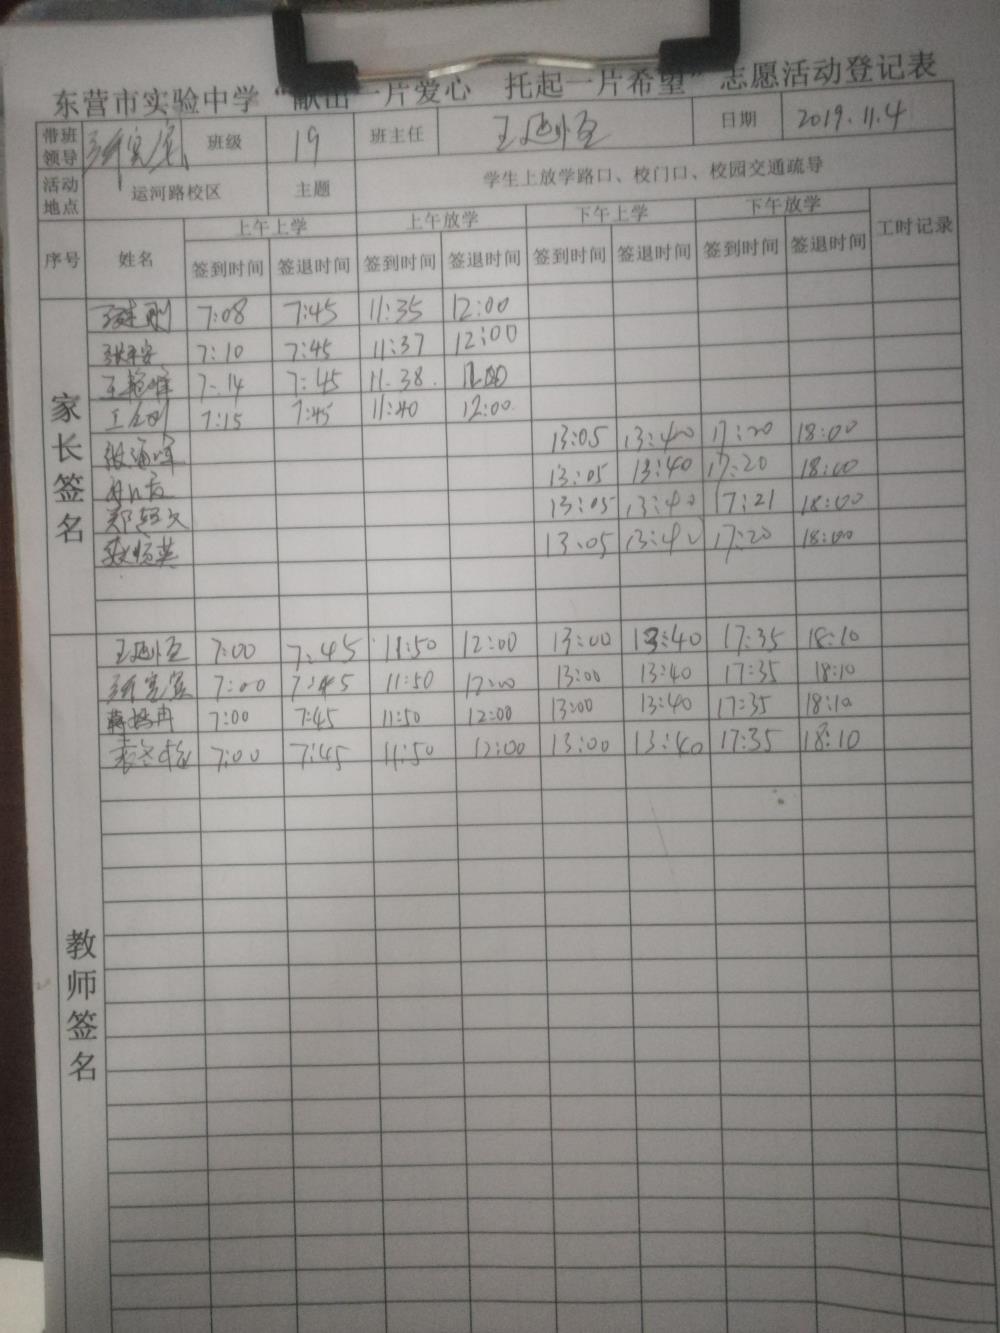 东营市实验中学“献出一片爱心 托起一片希望”志愿活动登记表
带班领导 班级 19 班主任 日期 2019.11.4
活动地点 运河路校区 主题 学生上放学路口、校门口、校园交通疏导
序号 姓名 上午上学 上午放学 下午上学 下午放学 工时记录
签到时间 签退时间 签到时间 签退时间 签到时间 签退时间 签到时间 签退时间
家长签名
7:08 7:45 11:35 12:00
张平安 7:10 7:45 11:37 12:00
王艳峰 7.14 7:45 11.38. 12:00
7:15 7:45 11:40 12:00
13:05 13:40 17:20 18:00
13:05 13:40 17:20 18:00
13:05 13:40 17:21 18:00
13:05 13:40 17:20 18:00
教师签名
7:00 7:45 11:50 12:00 13:00 13:40 17:35 18:10
7:00 7:45 11:50 12:00 13:00 13:40 17:35 18:10
7:00 7:45 11:50 12:00 13:00 13:40 17:35 18:10
7:00 7:45 11:50 12:00 13:00 13:40 17:35 18:10